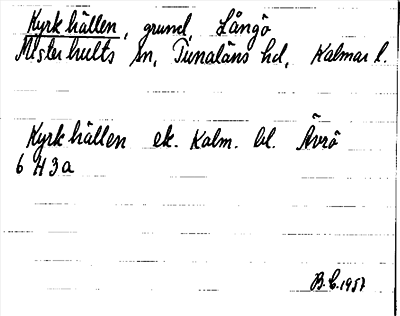 Kyrkhällen, grund, Långö
Misterhults sn, Tunaläns hd, Kalmar l.
Kyrkhällen ek. Kalm. bl. Ävrö
6 H 3 a
B.E. 1957